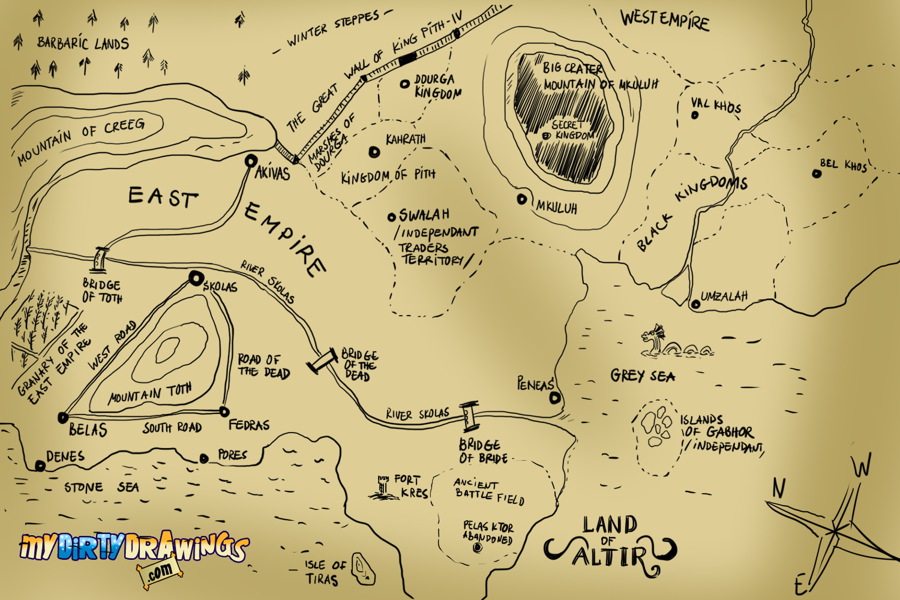 BARBARIC LANDS
- WINTER STEPPES -
WEST EMPIRE
THE GREAT WALL OF KING PITH-IV
DOURGA
KINGDOM
BIG CRATER
MOUNTAIN OF MKULUH
SECRET
KINGDOM
VAL KHOS
BEL KHOS
MOUNTAIN OF CREEG
MARSHES OF
DOURGA
KAHRATH
KINGDOM OF PITH
AKIVAS
EAST
EMPIRE
SWALAH
/INDEPENDANT
TRADERS
TERRITORY/
MKULUH
BLACK KINGDOMS
UMZALAH
BRIDGE
OF TOTH
SKOLAS
RIVER SKOLAS
GRANARY OF THE
EAST EMPIRE
WEST ROAD
MOUNTAIN TOTH
ROAD OF
THE DEAD
BRIDGE
OF THE
DEAD
GREY SEA
PENEAS
BELAS
SOUTH ROAD
FEDRAS
RIVER SKOLAS
BRIDGE
OF BRIDE
ISLANDS
OF GABHOR
/INDEPENDANT/
DENES
PORES
STONE SEA
FORT
KRES
ANCIENT
BATTLE FIELD
PELAS KTOR
ABANDONED
ISLE OF
TIRAS
LAND
OF
ALTIR
N
W
E
MYDIRTYDRAWINGS
.COM